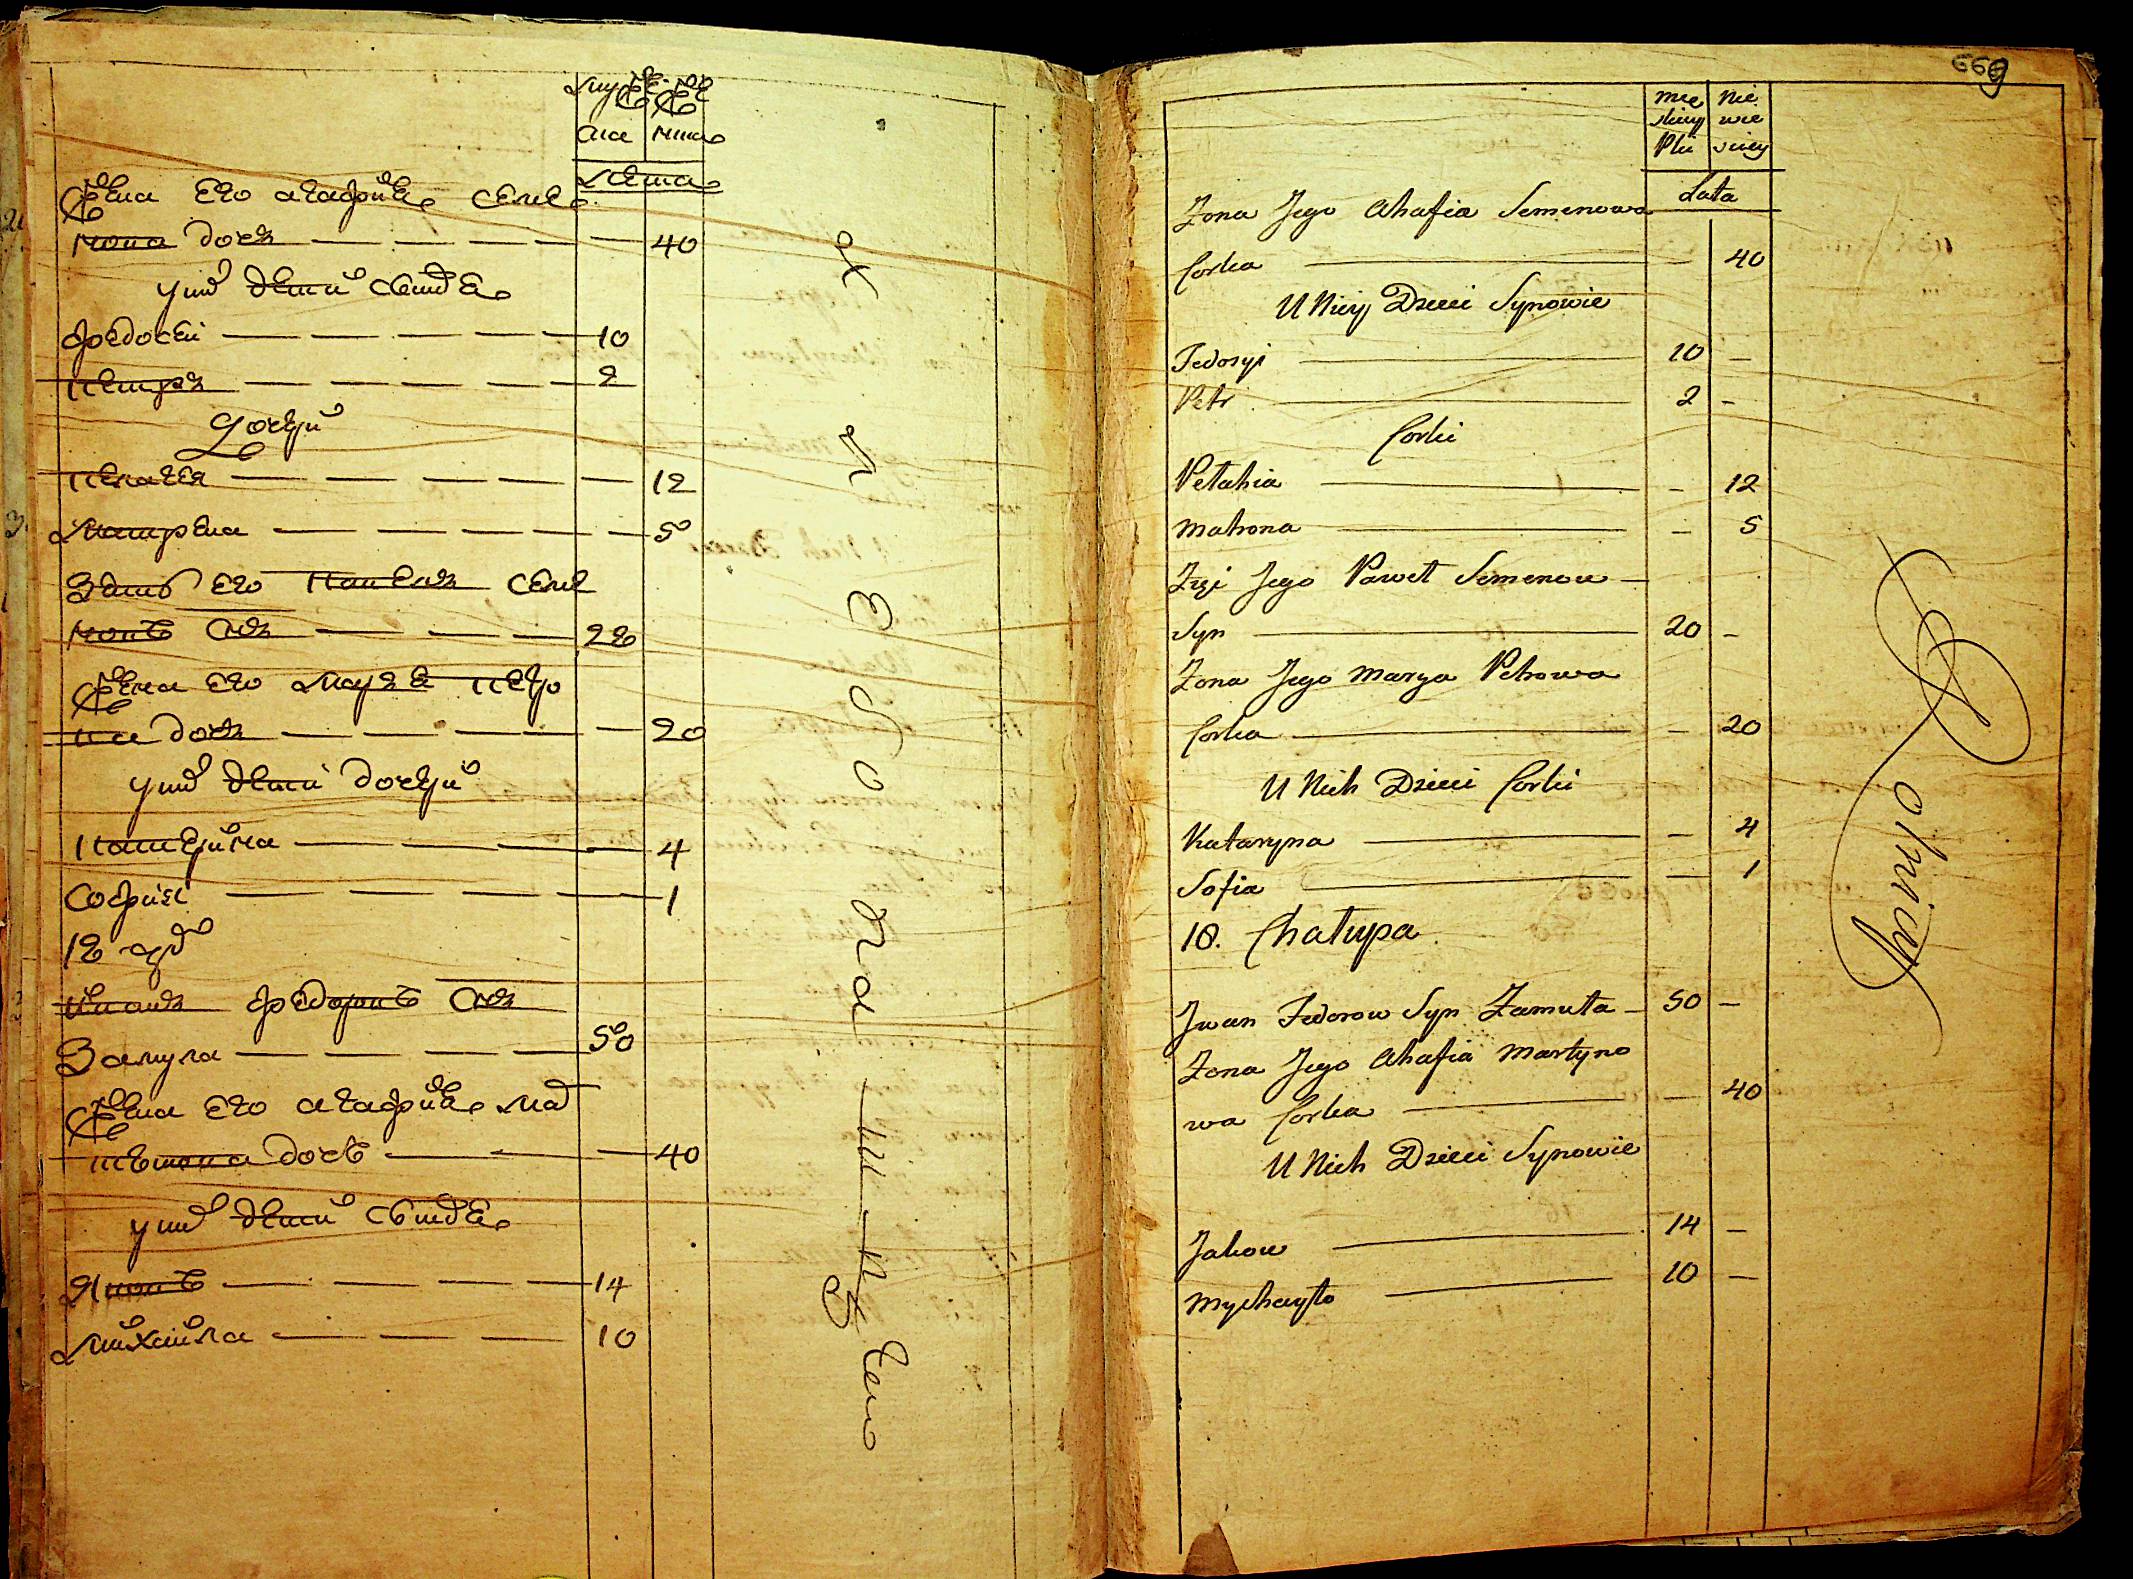 мужеска женска
лета
Жена его агафиѣ семе
нова дочъ — 40
у ниⷯ дети сыновѣ
федосеи — 10
петръ — 2
Дочери
пелагея — 12
матрена — 5
Зять его павелъ семе
новъ сынъ — 20
Жена его маря петро
ва дочъ — 20
у ниⷯ дети дочери
катерина — 4
софия — 1
18 д
иванъ федоровъ сынъ
Замула — 50
Жена его агафиѣ мар
тынова дочъ — 40
у ниⷯ дети сыновѣ
Яковъ — 14
михаила — 10
669
Mę skiey Płci
Nie wie sciey
Lata
Żona Jego Ahafia Semenowa
Corka — 40
U Niey Dzieci Synowie
Fedosyi — 10 —
Petr — 2 —
Corki
Pełahia — 12
Matrona — 5
Zięć Jego Paweł Semenow
Syn — 20 —
Żona Jego Marya Petrowa
Corka — 20
U Nich Dzieci Corki
Kataryna — 4
Sofia — 1
18. Chałupa
Jwan Fedorow Syn Zamuła — 50 —
Żona Jego Ahafia Martyno
wa Corka — 40
U Nich Dzieci Synowie
Jakow — 14 —
Mychayło — 10 —